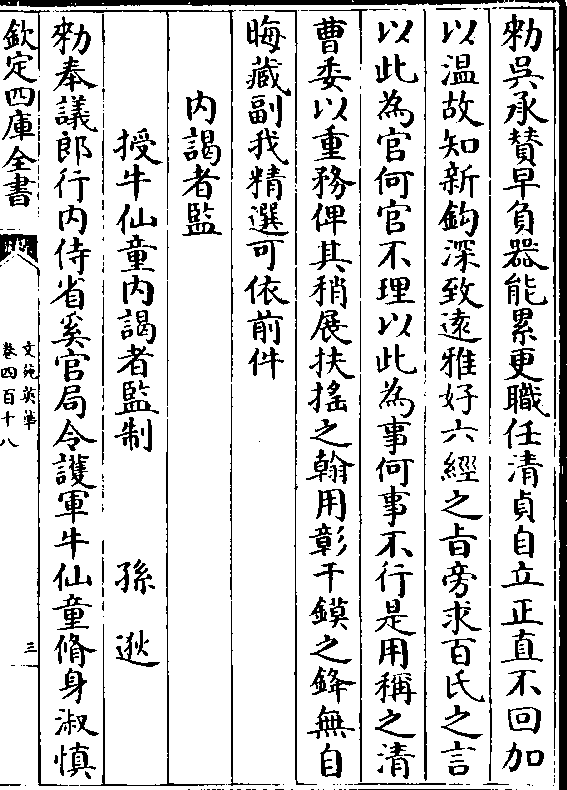 勑吳承賛早負器能累更職任清貞自立正直不回加
以温故知新鈎深致逺雅好六經之㫖旁求百氏之言
以此為官何官不理以此為事何事不行是用稱之清
曹委以重務俾其稍展扶揺之翰用彰干鏌之鋒無自
晦藏副我精選可依前件
内謁者監
授牛仙童内謁者監制 孫逖
勑奉議郎行内侍省奚官局令䕶軍牛仙童脩身淑慎
欽定四庫全書
文苑英華
卷四百十八
三